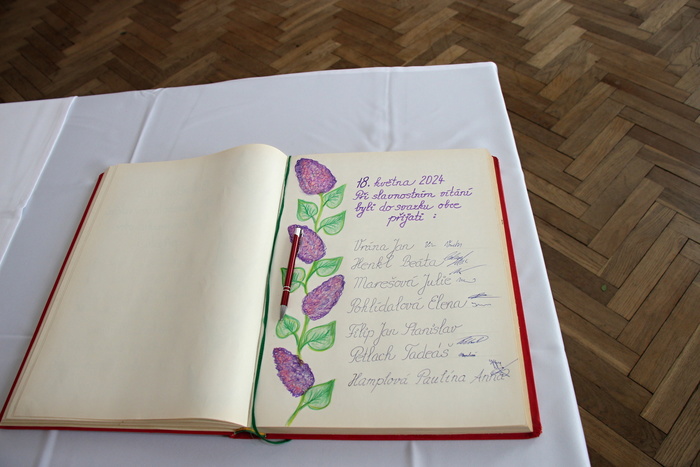 18. května 2024
Při slavnostním vítání
byli do svazku obce
přijati :
Vrána Jan
Henkl Beáta
Marešová Julie
Pohlídalová Elena
Filip Jan Stanislav
Petlach Tadeáš
Hamplová Paulína Anna